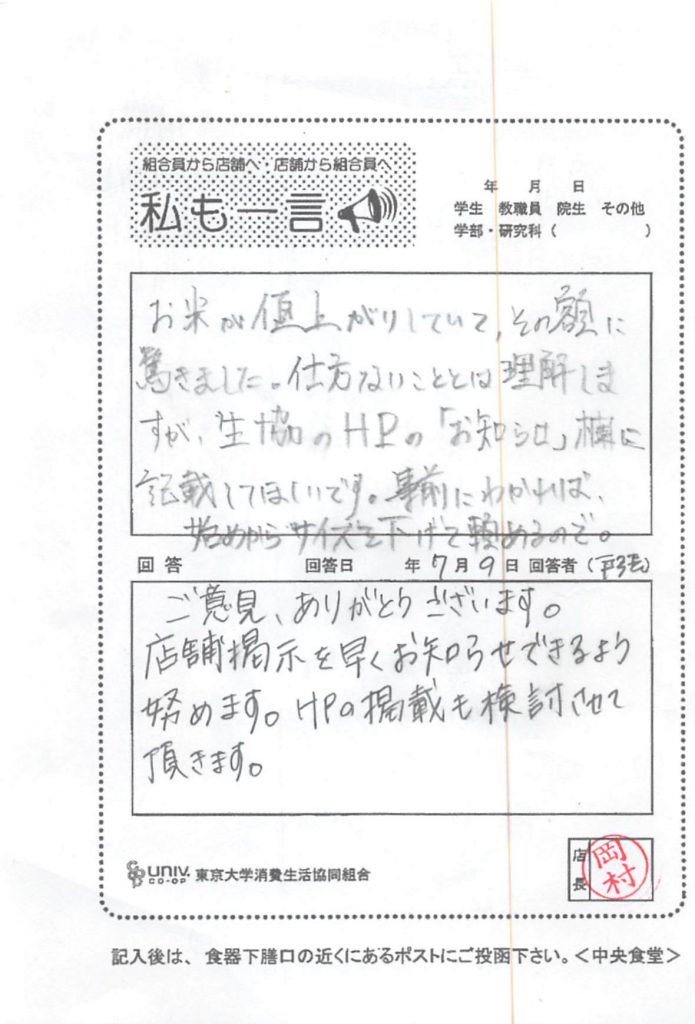 組合員から店舗へ 店舗から組合員へ
私も一言
年 月 日
学生 教職員 院生 その他
学部・研究科( )
お米が値上がりしていて、その額に
驚きました。仕方ないこととは理解しま
すが、生協のHPの「お知らせ」欄に
記載してほしいです。事前にわかれば、
始めからサイズを下げて頼めるので。
回答 回答日 年 7月 9日 回答者( )
ご意見、ありがとうございます。
店舗掲示を早くお知らせできるよう
努めます。HPの掲載も検討させて
頂きます。
UNIV. CO-OP 東京大学消費生活協同組合
店長 岡村
記入後は、食器下膳口の近くにあるポストにご投函下さい。<中央食堂>